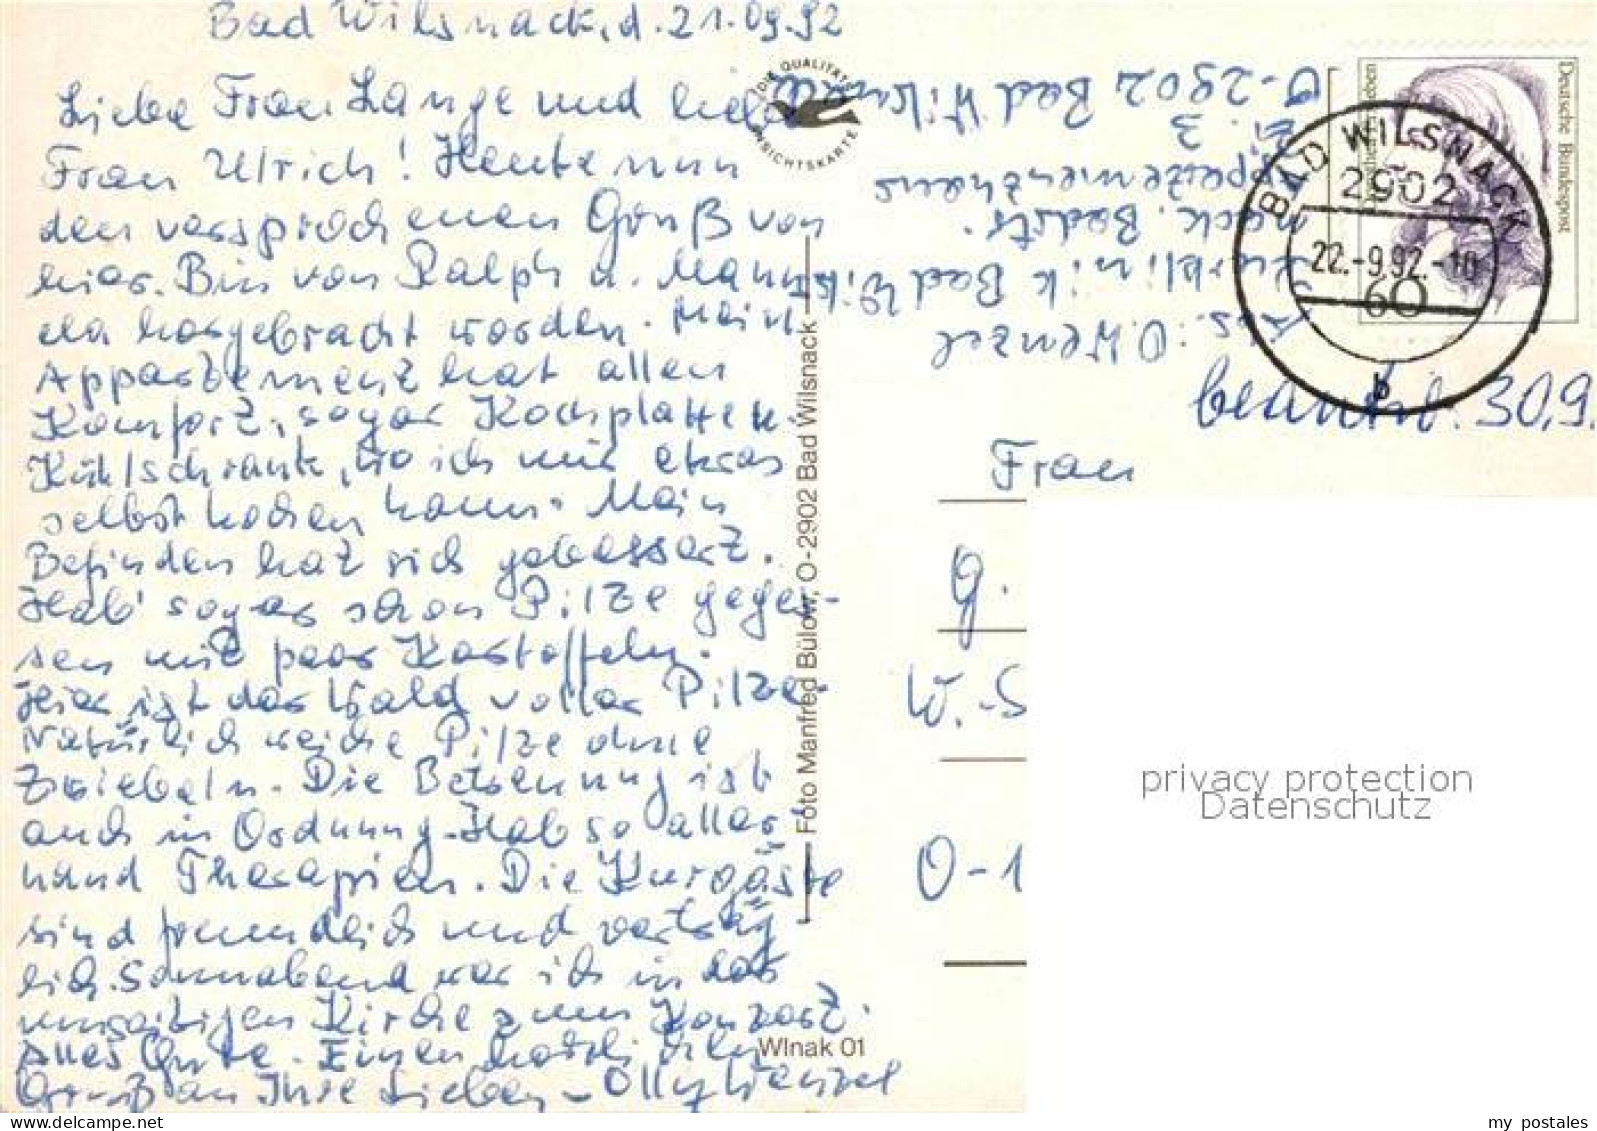 Bad Wilsnack, d. 21.09.92
Liebe Frau Lange und liebe
Frau Ulrich! Heute nun
den versprochenen Gruß von
hier. Bin von Ralph u. Manu
ela hergebracht worden. Mein
Appartement hat allen
Komfort, sogar Kochplatten
Kühlschrank, wo ich mir etwas
selbst kochen kann. Mein
Befinden hat sich gebessert.
Hab' sogar schon Pilze geges-
sen mit paar Kartoffeln.
Hier ist der Wald voller Pilze.
Natürlich weiche Pilze ohne
Zwiebeln. Die Betreuung ist
auch in Ordnung. Hab so aller
hand Therapien. Die Kurgäste
sind freundlich und verträg
lich. Sonnabend war ich in der
Kirche zum Konzert.
Alles Gute. Einen herzlichen
Gruß an Ihre Lieben - Olly Wenzel
WInak 01
Foto Manfred Bülow, O-2902 Bad Wilsnack
DIE QUALITÄTS
ANSICHTSKARTE
Abs.: O. Wenzel
Kurklinik Bad Wils
nack. Badstr.
Appartementhaus
Zi. 3
O-2902 Bad Wilsnack
Deutsche Bundespost
60
BAD WILSNACK
2902
22.-9.92.-10
b
beantw. 30.9.
Frau
G.
W.-S
O-1
privacy protection
Datenschutz
my postales